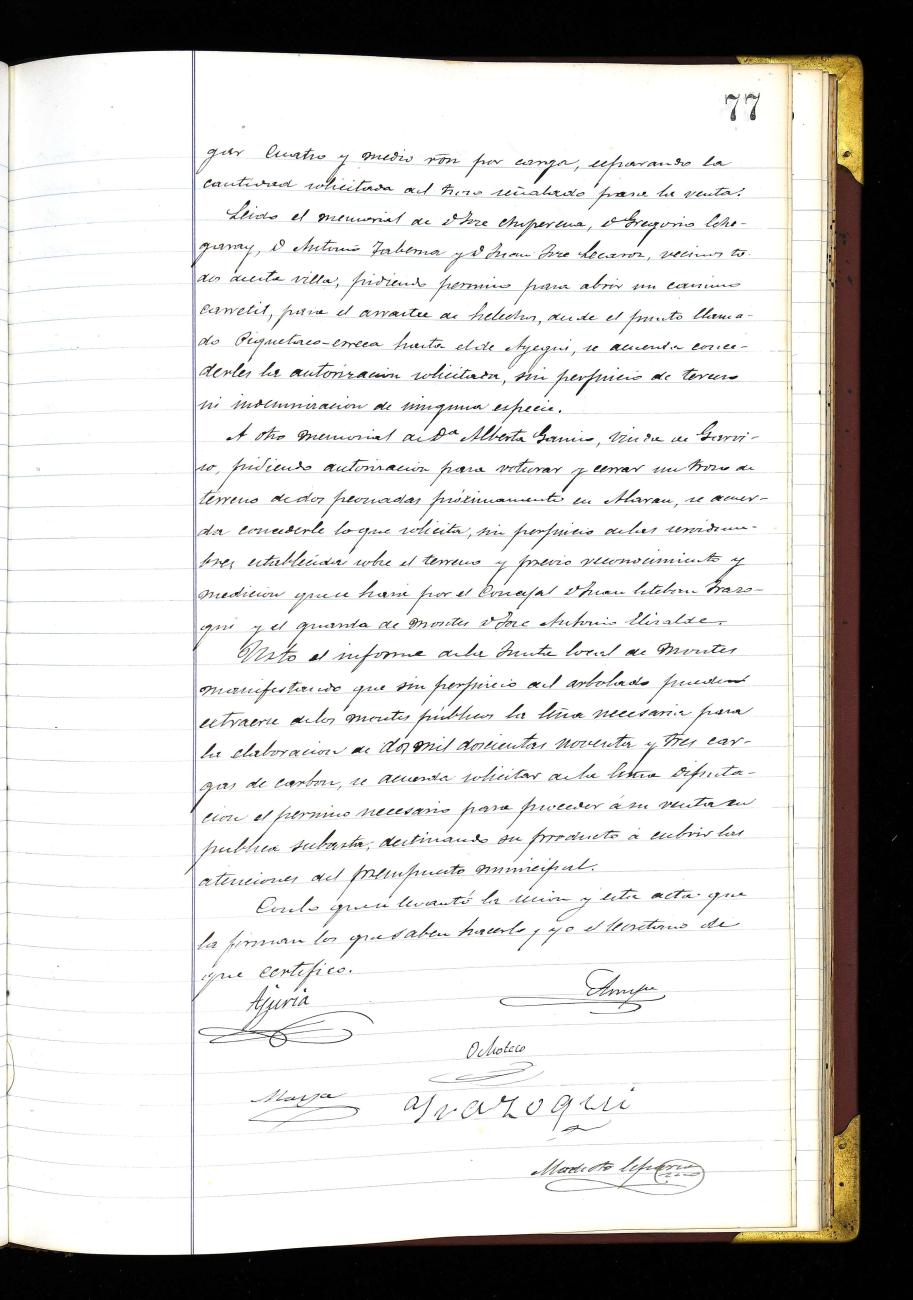 77
gar cuatro y medio rón por carga, separando la
cantidad solicitada del trozo señalado para la venta.
Leido el memorial de D José Auperena, D Gregorio Eche-
garay, D Antonio Taberna y D Juan José Lecaroz, vecinos to-
dos de esta villa, pidiendo permiso para abrir un camino
carretil, para el arrastre de helechos, desde el punto llama-
do Piquetaco-erreca hasta el de Ayegui, se acuerda conce-
derles la autorizacion solicitada, sin perjuicio de tercero
ni indemnizacion de ninguna especie.
A otro memorial de Dª Alberta viuda de
pidiendo autorizacion para roturar y cerrar un trozo de
terreno de dos peonadas próximamente en se acuer-
da concederle lo que solicita, sin perjuicio de las servidum-
bres establecidas sobre el terreno y previo reconocimiento y
medicion que se hará por el Concejal D Juan Esteban Irazo-
qui y el guarda de montes D José Antonio Elizalde.
Visto el informe de la Junta local de Montes
manifestando que sin perjuicio del arbolado pueden
extraerse de los montes públicos la leña necesaria para
la elaboracion de dos mil doscientas noventa y tres car-
gas de carbon, se acuerda solicitar de la Excma Diputa-
cion el permiso necesario para proceder á su venta en
publica subasta, destinando su producto á cubrir las
atenciones del presupuesto municipal.
Con lo que se levantó la sesion y esta acta que
la firman los que saben hacerlo, y yo el Secretario de
que certifico.
Ajuria
Ochoteco
Maya
Irazoqui
Modesto